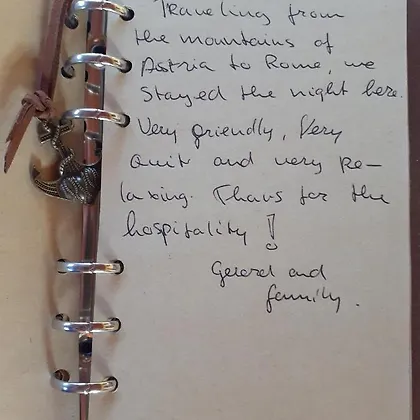 Traveling from
the mountains of
Astria to Rome, we
stayed the night here.
Very friendly, Very
Quit and very Re-
laxing. Thans for the
hospitality !
Gerard and
family.